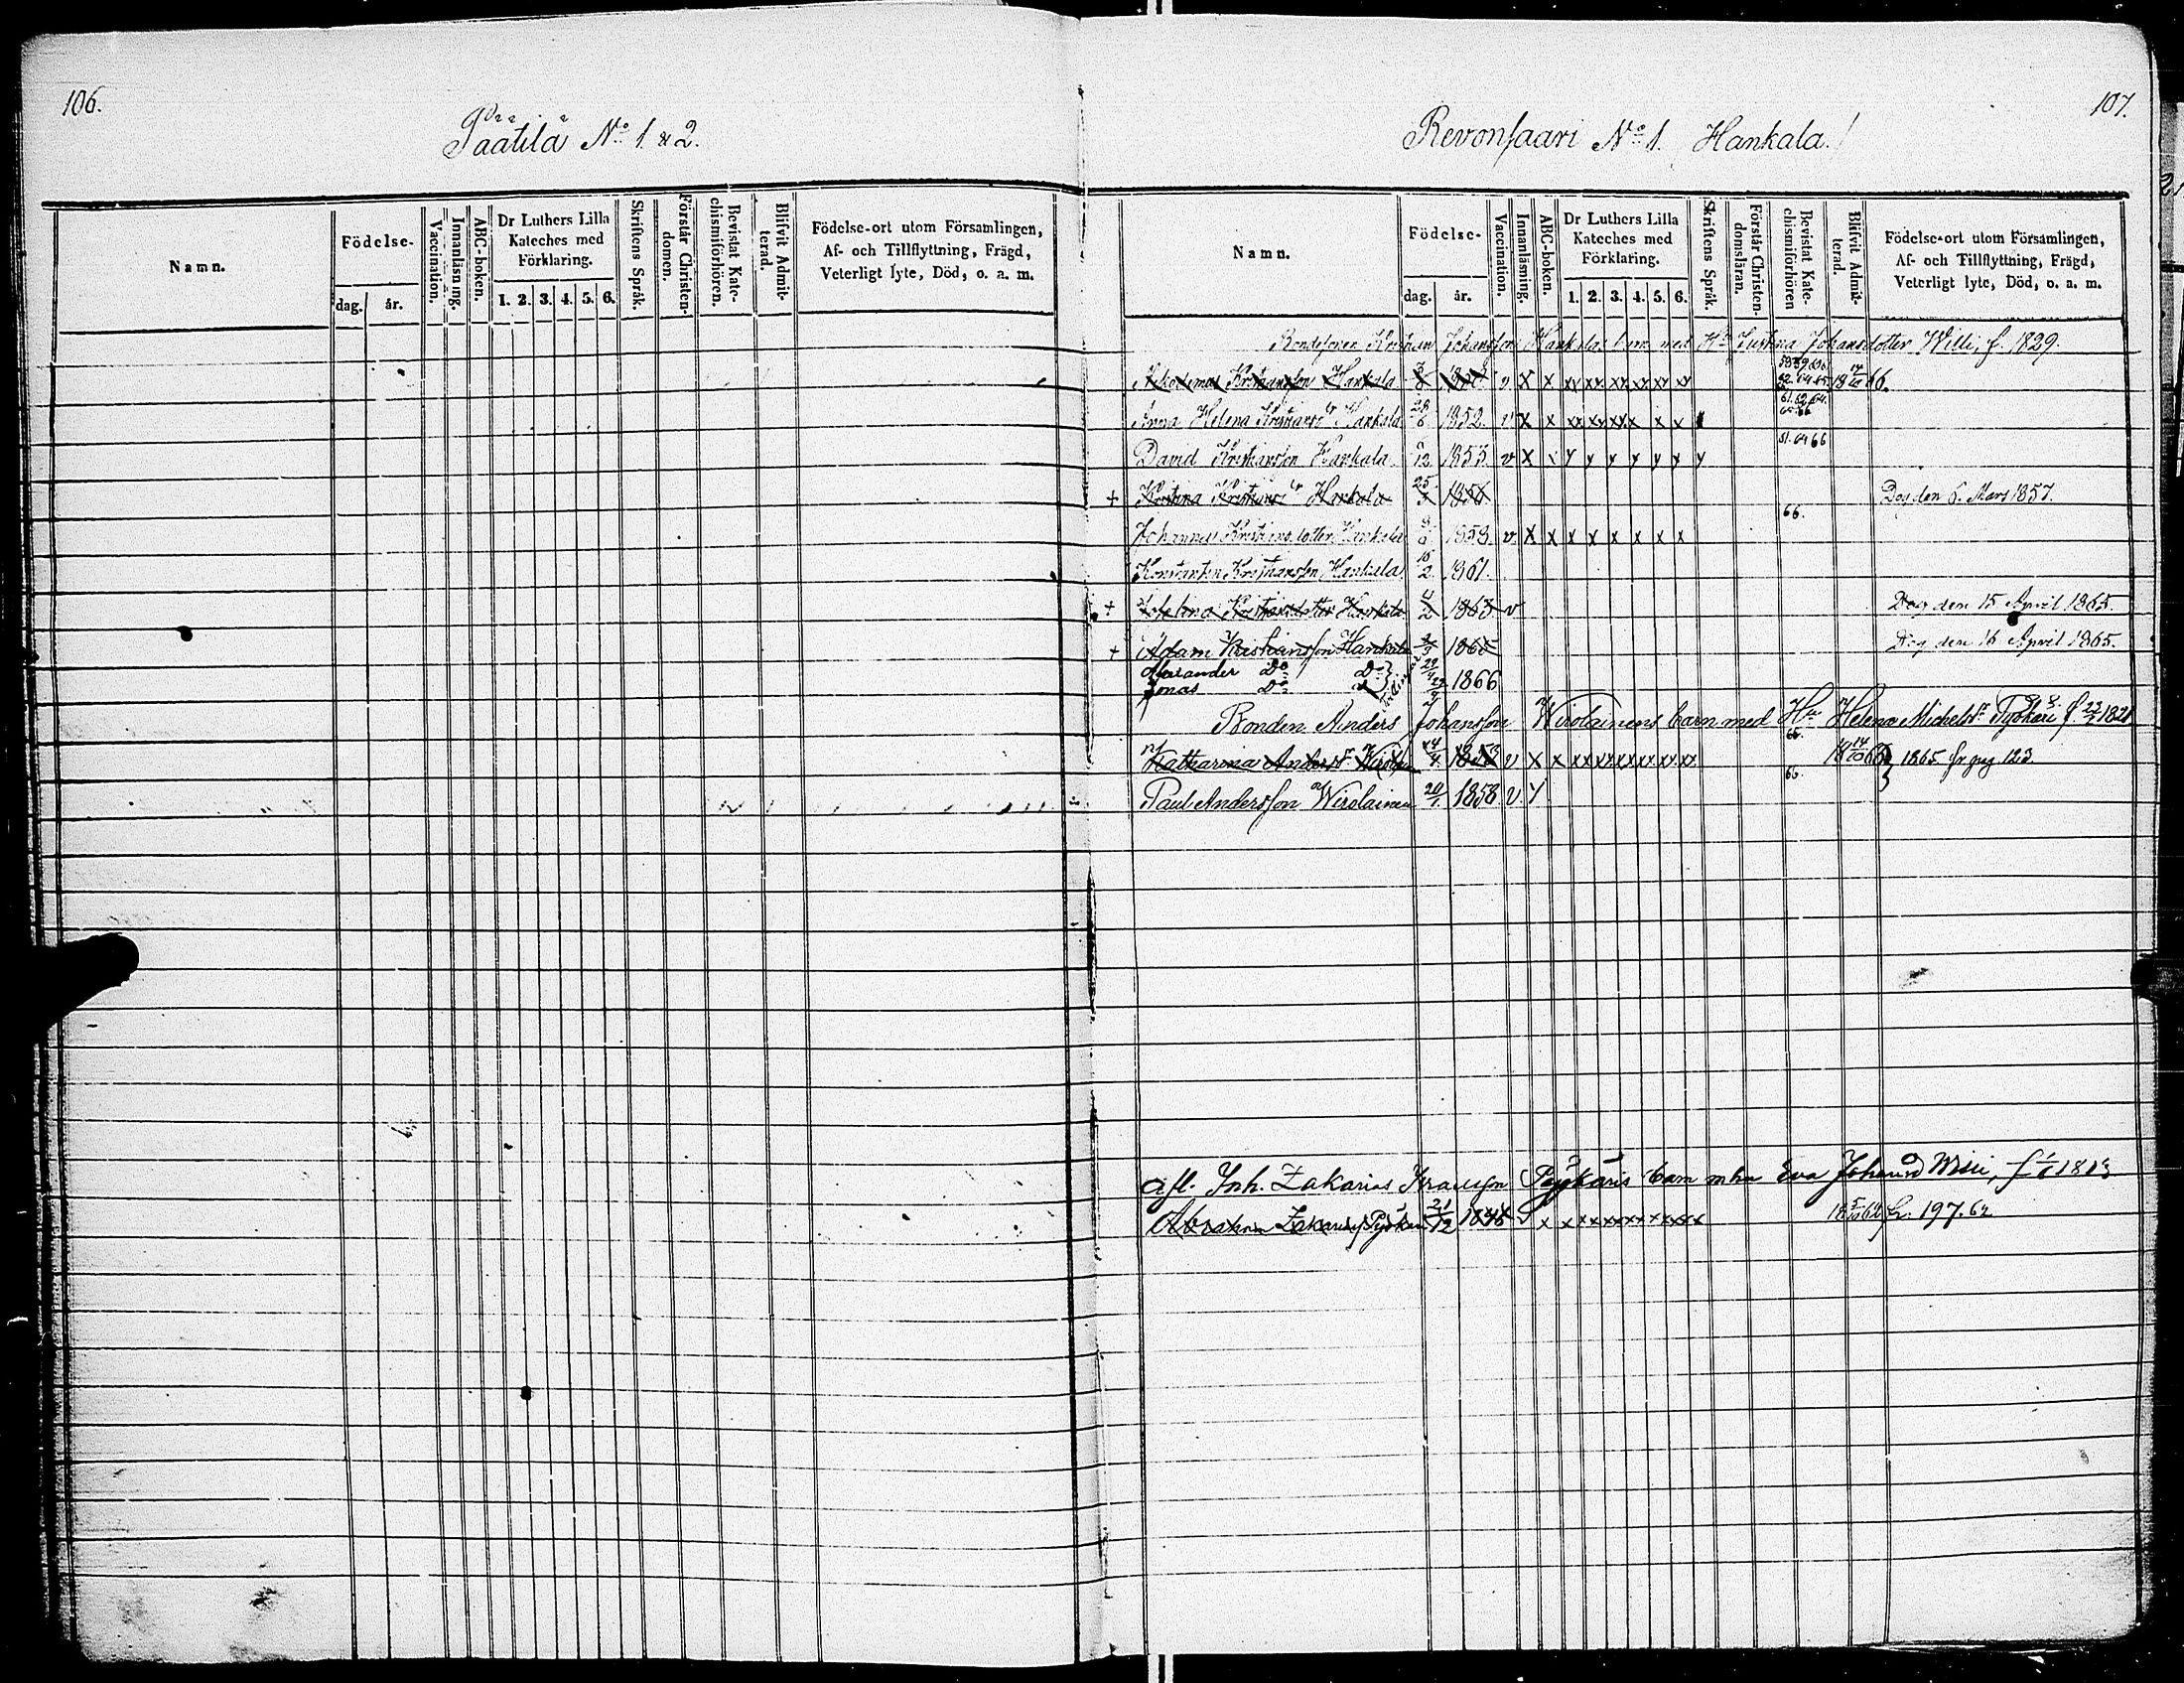 106.
Päätilä No 1. & 2.
Namn.
Födelse-
dag.
år.
Vaccination.
Innanläsning.
ABC-boken.
Dr Luthers Lilla
Kateches med
Förklaring.
1. 2. 3. 4. 5. 6.
Skriftens Språk.
Förstår Christen-
domen.
Bevistat Kate-
chismiförhören.
Blifvit Admit-
terad.
Födelse-ort utom Församlingen,
Af- och Tillflyttning, Frägd,
Veterligt lyte, Död, o. a. m.
107.
Revonsaari No 1. Hankala.
Namn.
Födelse-
dag.
år.
Vaccination.
Innanläsning.
ABC-boken.
Dr Luthers Lilla
Kateches med
Förklaring.
1. 2. 3. 4. 5. 6.
Skriftens Språk.
Förstår Christen-
domsläran.
Bevistat Kate-
chismiförhören
Blifvit Admit-
terad.
Födelse-ort utom Församlingen,
Af- och Tillflyttning, Frägd,
Veterligt lyte, Död, o. a. m.
Bondesonen Kristian Johansson Hankalas barn med Hu Justina Johansdotter Willi, f. 1829.
Kristiansson Hankala v x x xx xx xx xx xx xx 18 14/10 66.
Anna Helena Kristiansdr Hankala 28/6 1852. v x x xx xx xx x x x
David Kristiansson Hankala 12 1855 v x x y y y y y y y 51. 64 66
+ Kristina Kristiansdr Hankala 25 1856 Dog den 6. Mars 1857.
Johanna Kristiansdotter Hankala 1858. v. x x x x x x x x 66.
Konstantin Kristiansson Hankala 16/2 1861.
+ Kristiansdotter Hankala 4/2 1863 v Dog den 15 April 1865.
+ Adam Kristiansson Hankala 1865 Dog den 16 April 1865.
Alexander Do Do 29
Jonas Do Do 29 1866
Bonden Anders Johansson Wirolainens barn med Hu Helena Michelsdr Pyökäri f. 22/7 1821
Katharina Andersdr 14/4 1853 v x x xx xx xx xx xx xx 66. 18 14/10 66 } 1865 fr pag 123.
Paul Andersson Wirolainen 20/1 1858 v y 66.
afl. Inh. Zakarias Pyökäris barn m hu Eva f 1/6 1813
Abraham Zakariasson Pyökäri 21/12 1848 v x x xx xx xx xx xx xx 18 5/10 64 fr. 197. 62